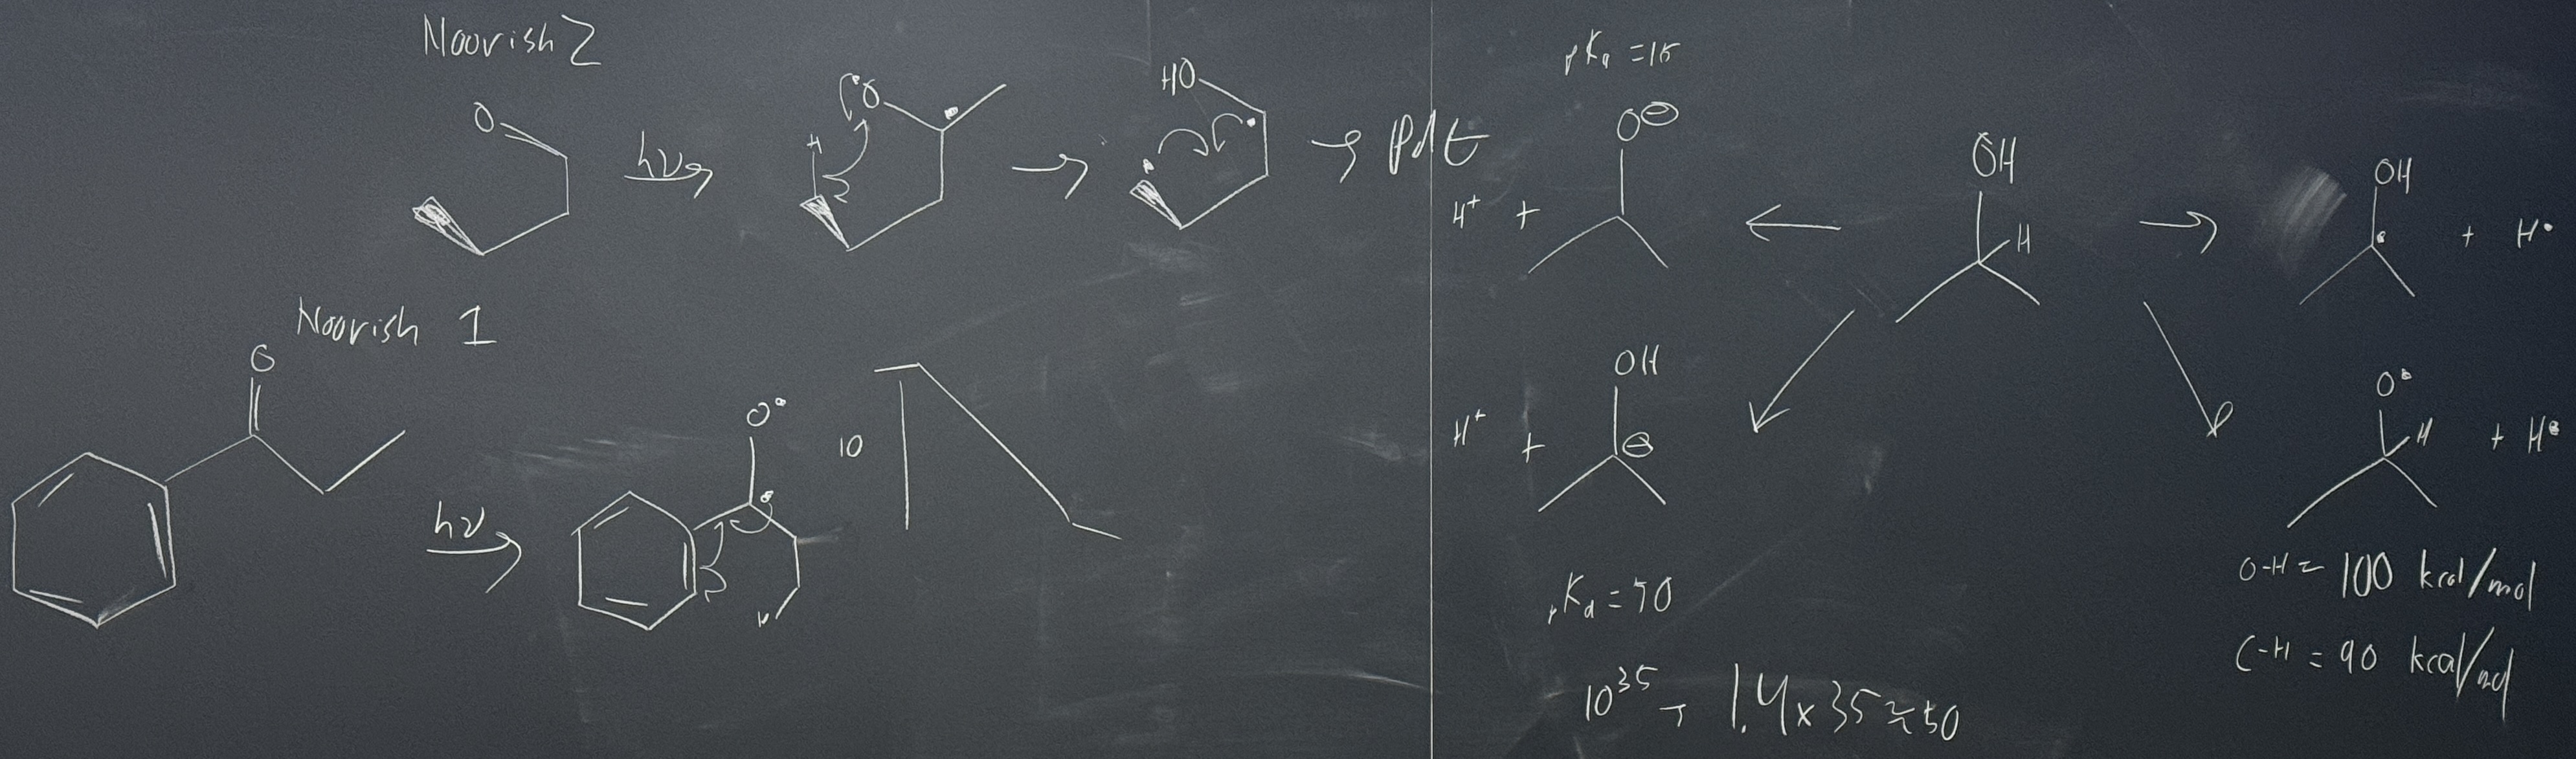 Noorish 2
O
hν
O
H
HO
→ Pdt
Noorish 1
O
hν
O•
10
pKa = 15
O⊖
H+ +
←
OH
H
→
OH
+ H•
H+ +
OH
⊖
O•
H
+ H•
pKa = 50
10^35 → 1.4 x 35 ≈ 50
O-H = 100 kcal/mol
C-H = 90 kcal/mol